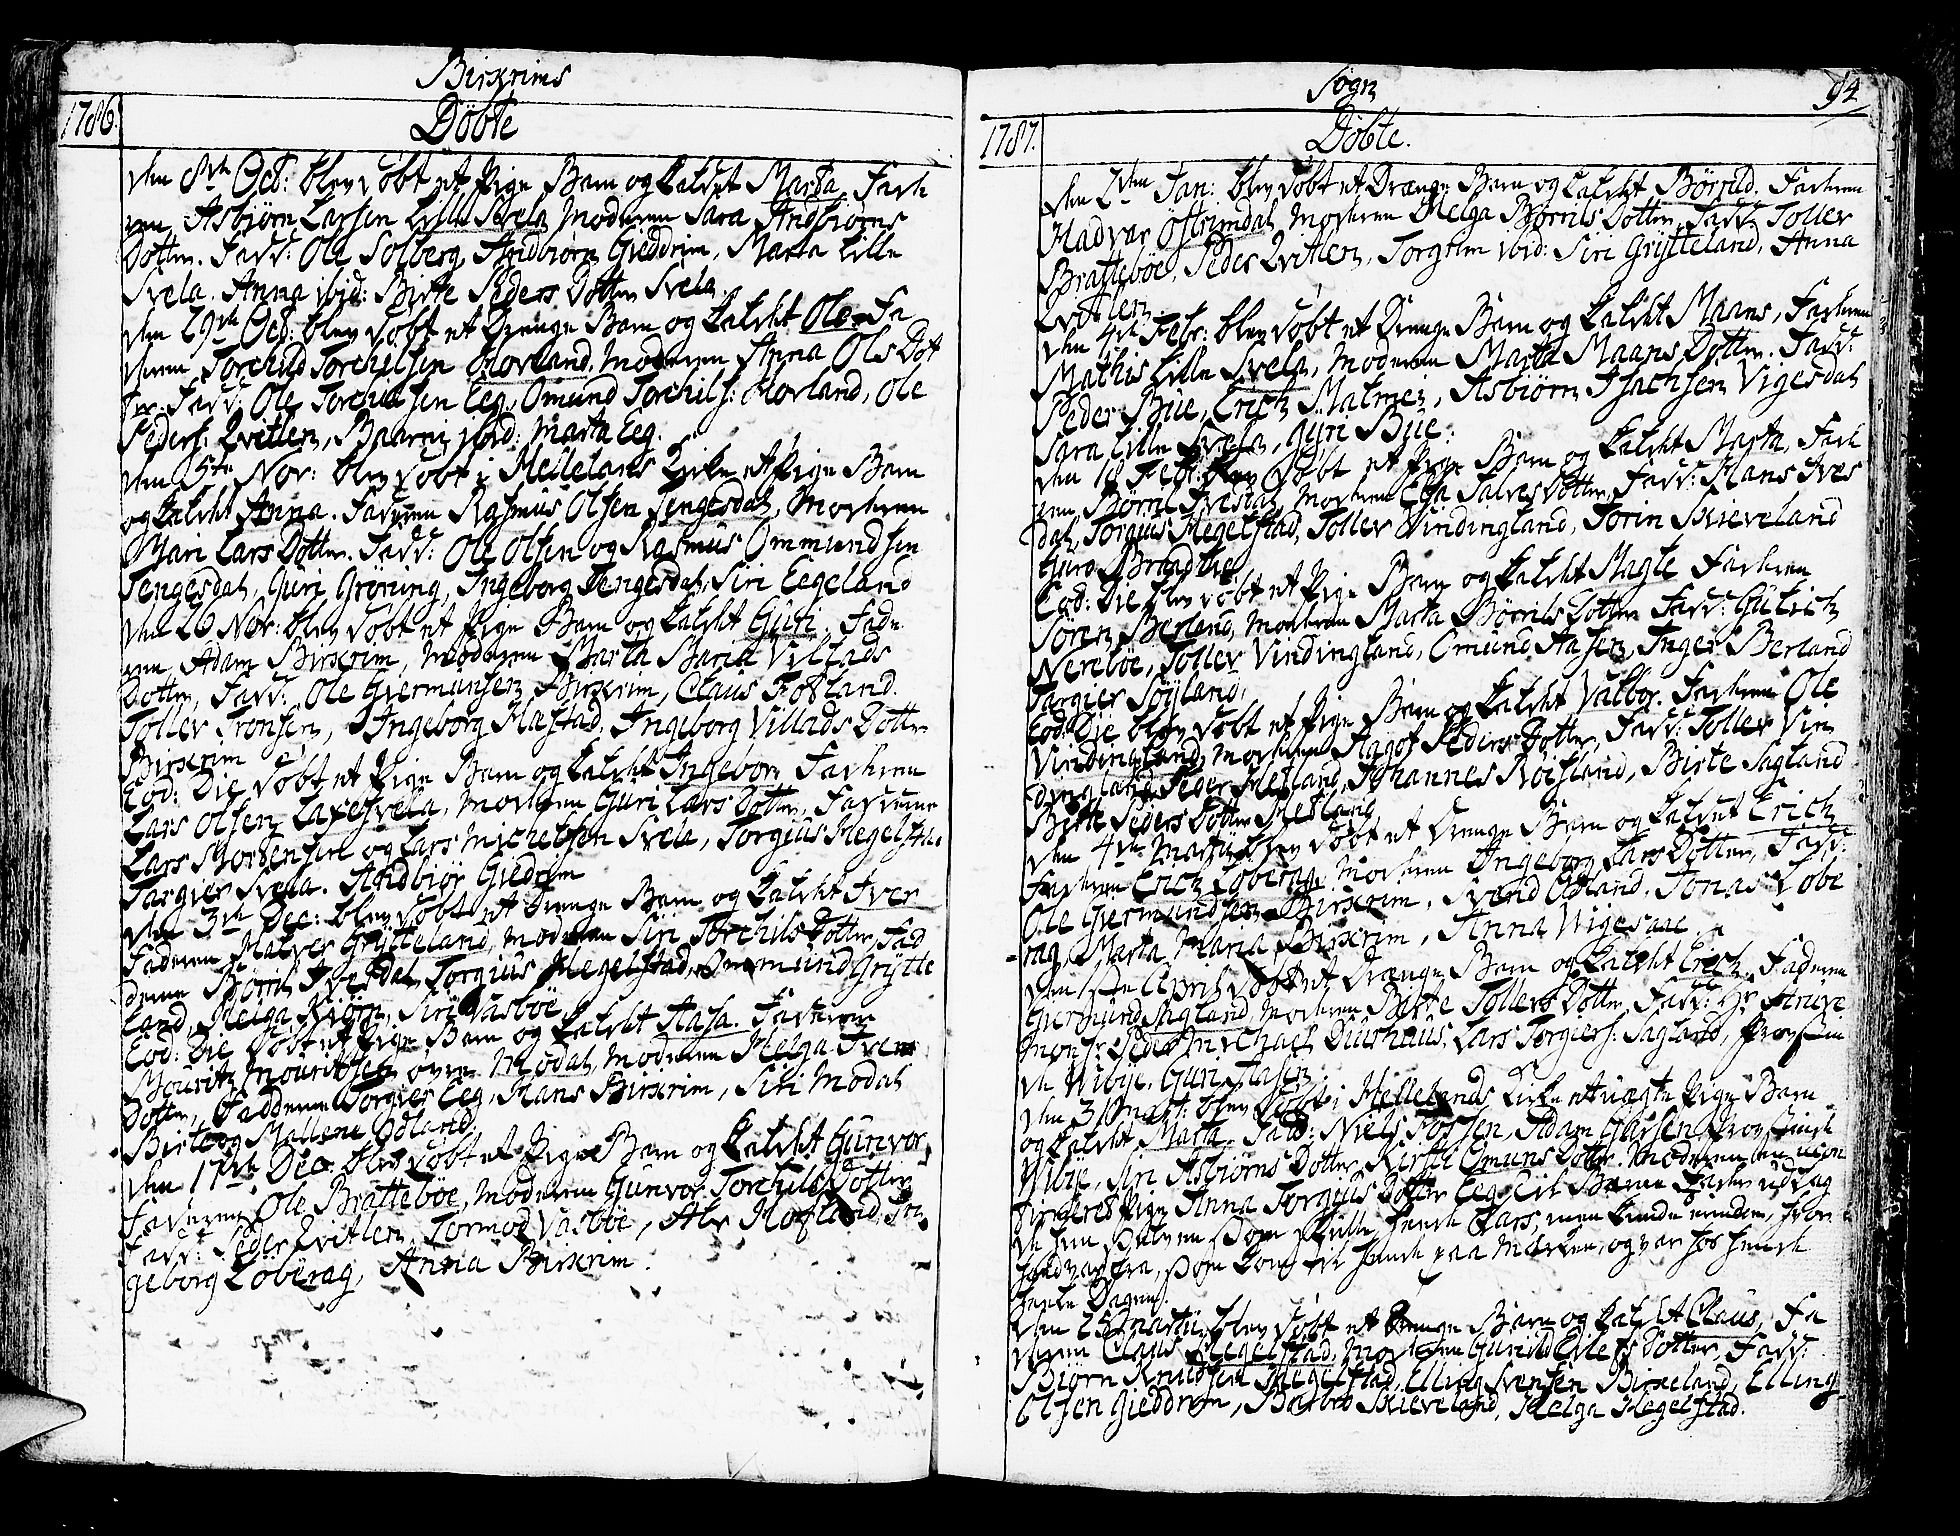 Birkrims
1786.
Döbte
den 8de Oct: blev döbt et Pige Barn og kaldet Marta, Fade
ren Asbjörn Larsen Lille Svela Moderen Sara Andbiörns
Dotter. Fadd: Ole Solberg, Andbiorn Gieddrim, Marta Lille
Svela. Anna ibid: Birte Peders Dotter Svela.
den 29de Oct: blev döbt et Drenge Barn og kaldet Ole Fa
deren Torchild Torchilsen Hovland, Moderen Anna Ols Dot
ter. Fadd: Ole Torchilsen Eeg, Omund Torchils: Hovland, Ole
Peders: Qvitlen, Baarni ibid: Marta Eeg.
den 5te Nov: blev döbt i Hellelands Kirke et Pige Barn
og kaldet Anna. Faderen Rasmus Olsen Tengesdal, Moderen
Mari Lars Dotter. Fadd: Ole Olsen og Rasmus Ommundsen
Tengesdal, Guri Gröning, Ingeborg Tengesdal, Siri Eegeland
den 26 Nov: blev döbt et Pige Barn og kaldet Guri. Fade
ren Adam Birkrim, Moderen Marta Maria Villads
Dotter, Fadd: Ole Giermunsen Birkrim, Claus Fotland.
Toller Tronsen, Ingeborg Hæstad, Ingeborg Villads Dotter
Birkrim
Eod: Die döbt et Pige Barn og kaldet Ingeborg Faderen
Lars Olsen Laxesvela, Moderen Guri Lars Dotter, Fadderne
Lars Mortensen og Lars Michelsen Svela, Torgius Hegelstad
Targier Svela. Andbiör Giedrim
den 3de Dec: blev döbt et Drenge Barn og kaldet Iver
Faderen Malver Grytteland, Moderen Siri Torchils Dotter, Fad
derne Börill Ivesdal, Torgius Hegelstad, Ommund Grytte
land, Helga Kiörn, Siri Vasböe
Eod: Die döbt et Pige Barn og kaldet Aasa. Faderen
Mouritz Mouritsen övre Modal, Moderen Helga Sven
Dotter, Fadderne Torgier Eeg, Hans Birkrim, Siri Modal
Birte og Mallene Ödland.
den 17de Dec: blev döbt et Pige Barn og kaldet Gunvor
Faderen Ole Bratteböe, Moderen Gunvor Torchils Dotter
Fadd: Peder Qvitlen, Tormod Vasböe, Hofland, In
geborg Löbrag, Anna Birkrim.
Sogn
94
1787.
Döbte.
den 2den Jan: blev döbt et Drænge Barn og kaldet Börild. Faderen
Hadvar Östremdal, Moderen Helga Börrils Dotter, Fadd: Toller
Bratteböe, Peder Qvitlen, Torgrim ibid: Siri Grytteland, Anna
Qvitlen
den 4de Febr: blev döbt et Drenge Barn og kaldet Maans, Faderen
Mathis Lille Svela, Moderen Marta Maans Dotter. Fadd:
Peder Bue, Erich Malmei, Asbiörn Isachsen Vigesdal
Sara Lille Svela, Gyri Bue.
den 18 Febr: blev döbt et Pige Barn og kaldet Marta, Fade
ren Börril Ivesdal, Moderen Elsa Salves Dotter, Fadd: Hans Ives
dal, Torgius Hegelstad, Toller Vindingland, Torin Skieveland
Guro Brandhei
Eod: Die blev döbt et Pige Barn og kaldet Magle Faderen
Sören Berland, Moderen Marta Börrils Dotter Fadd: Gulich
Nereböe, Toller Vindingland, Omund Aasen, Inger Berland
Targier Söyland,
Eod: Die blev döbt et Pige Barn og kaldet Valbor. Faderen Ole
Vindingland, Moderen Aagot Peders Dotter, Fadd: Toller Vin
dingland, Peder Netland, Johannes Röisland, Birte Sagland
Birte Peders Dotter Netland
den 4de Martii blev döbt et Drenge Barn og kaldet Erich
Faderen Erich Löbrag, Moderen Ingeborg Lars Dotter, Fadd:
Ole Giermundsen Birkrim, Svend Ödland, Jonas Löbe
rag, Marta Maria Birkrim, Anna Vigesaae
den 1ste April döbt et Drænge Barn og kaldet Erich, Faderen
Giermund Sagland, Moderen Birte Tollers Dotter, Fadd: Hr Struve
Monsr Peder Michael Duurhuus, Lars Torgiers: Sagland,
de Wibye. Guri Aasen.
den 31 Mart: blev döbt i Hellelands Kirke et uægte Pige Barn
og kaldet Marta. Fadd: Niels Fossen, Adam Giörsen
Wibye, Siri Asbiörns Dotter, Kirstie Omuns Dotter. Moderen en
Pige Anna Torgius Dotter Eeg, til Barne Fader udlag
de hun en Lars, men kunde hvor
hand var fra, som kom til hende paa Marken, og var hos hende
Dagen.
den 25 Martii blev döbt et Drenge Barn og kaldet Claus, Fa
deren Claus Hegelstad, Moderen Gunild Eilefs Dotter, Fadd:
Biörn Knudsen Hegelstad, Elling Svensen Birkeland, Elling
Olsen Gieddrim, Barbro Skieveland, Helga Hegelstad.